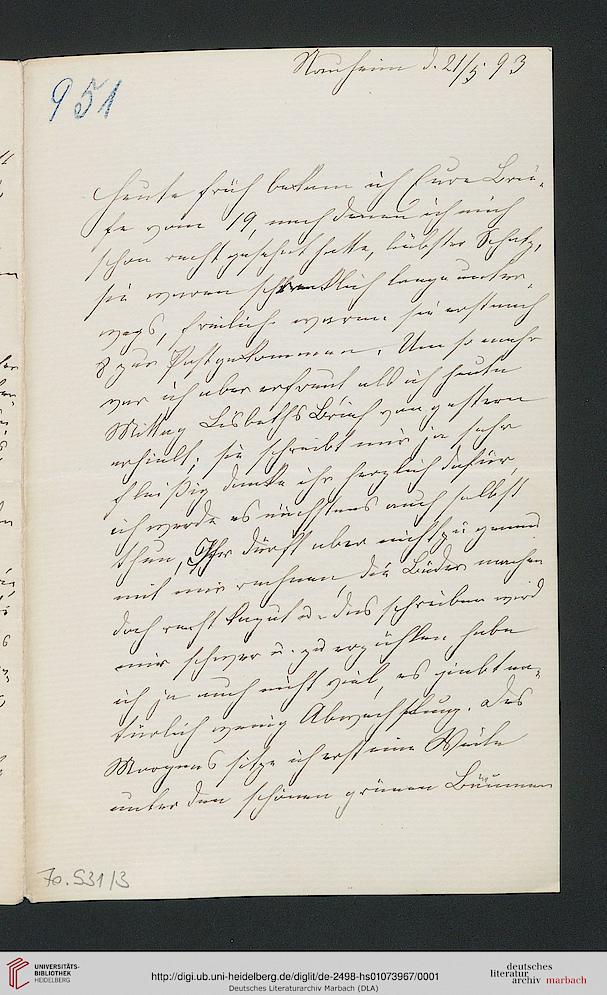 951
Nauheim d. 21/5 93
Heute früh bekam ich Eure Brie-
fe vom 19, nach denen ich mich
schon recht gesehnt hatte, liebster Schatz,
sie waren schrecklich lange unter-
wegs, freilich waren sie erst nach
8 zur Post gekommen. Um so mehr
war ich aber erfreut als ich heute
Mittag Lisbeths Brief von gestern
erhielt; sie schreibt mir ja sehr
fleißig danke ihr herzlich dafür,
ich werde es nächstens auch selbst
thun, Ihr dürft aber nicht zu genau
mit mir rechnen, die Bäder machen
doch recht kaput u. das schreiben wird
mir schwer u. zu erzählen habe
ich ja auch nicht viel, es giebt na-
türlich wenig Abwechslung. Des
Morgens sitze ich erst eine Weile
unter den schönen grünen Bäumen
70.531/3
UNIVERSITÄTS-
BIBLIOTHEK
HEIDELBERG
http://digi.ub.uni-heidelberg.de/diglit/de-2498-hs01073967/0001
Deutsches Literaturarchiv Marbach (DLA)
deutsches
literatur
archiv marbach